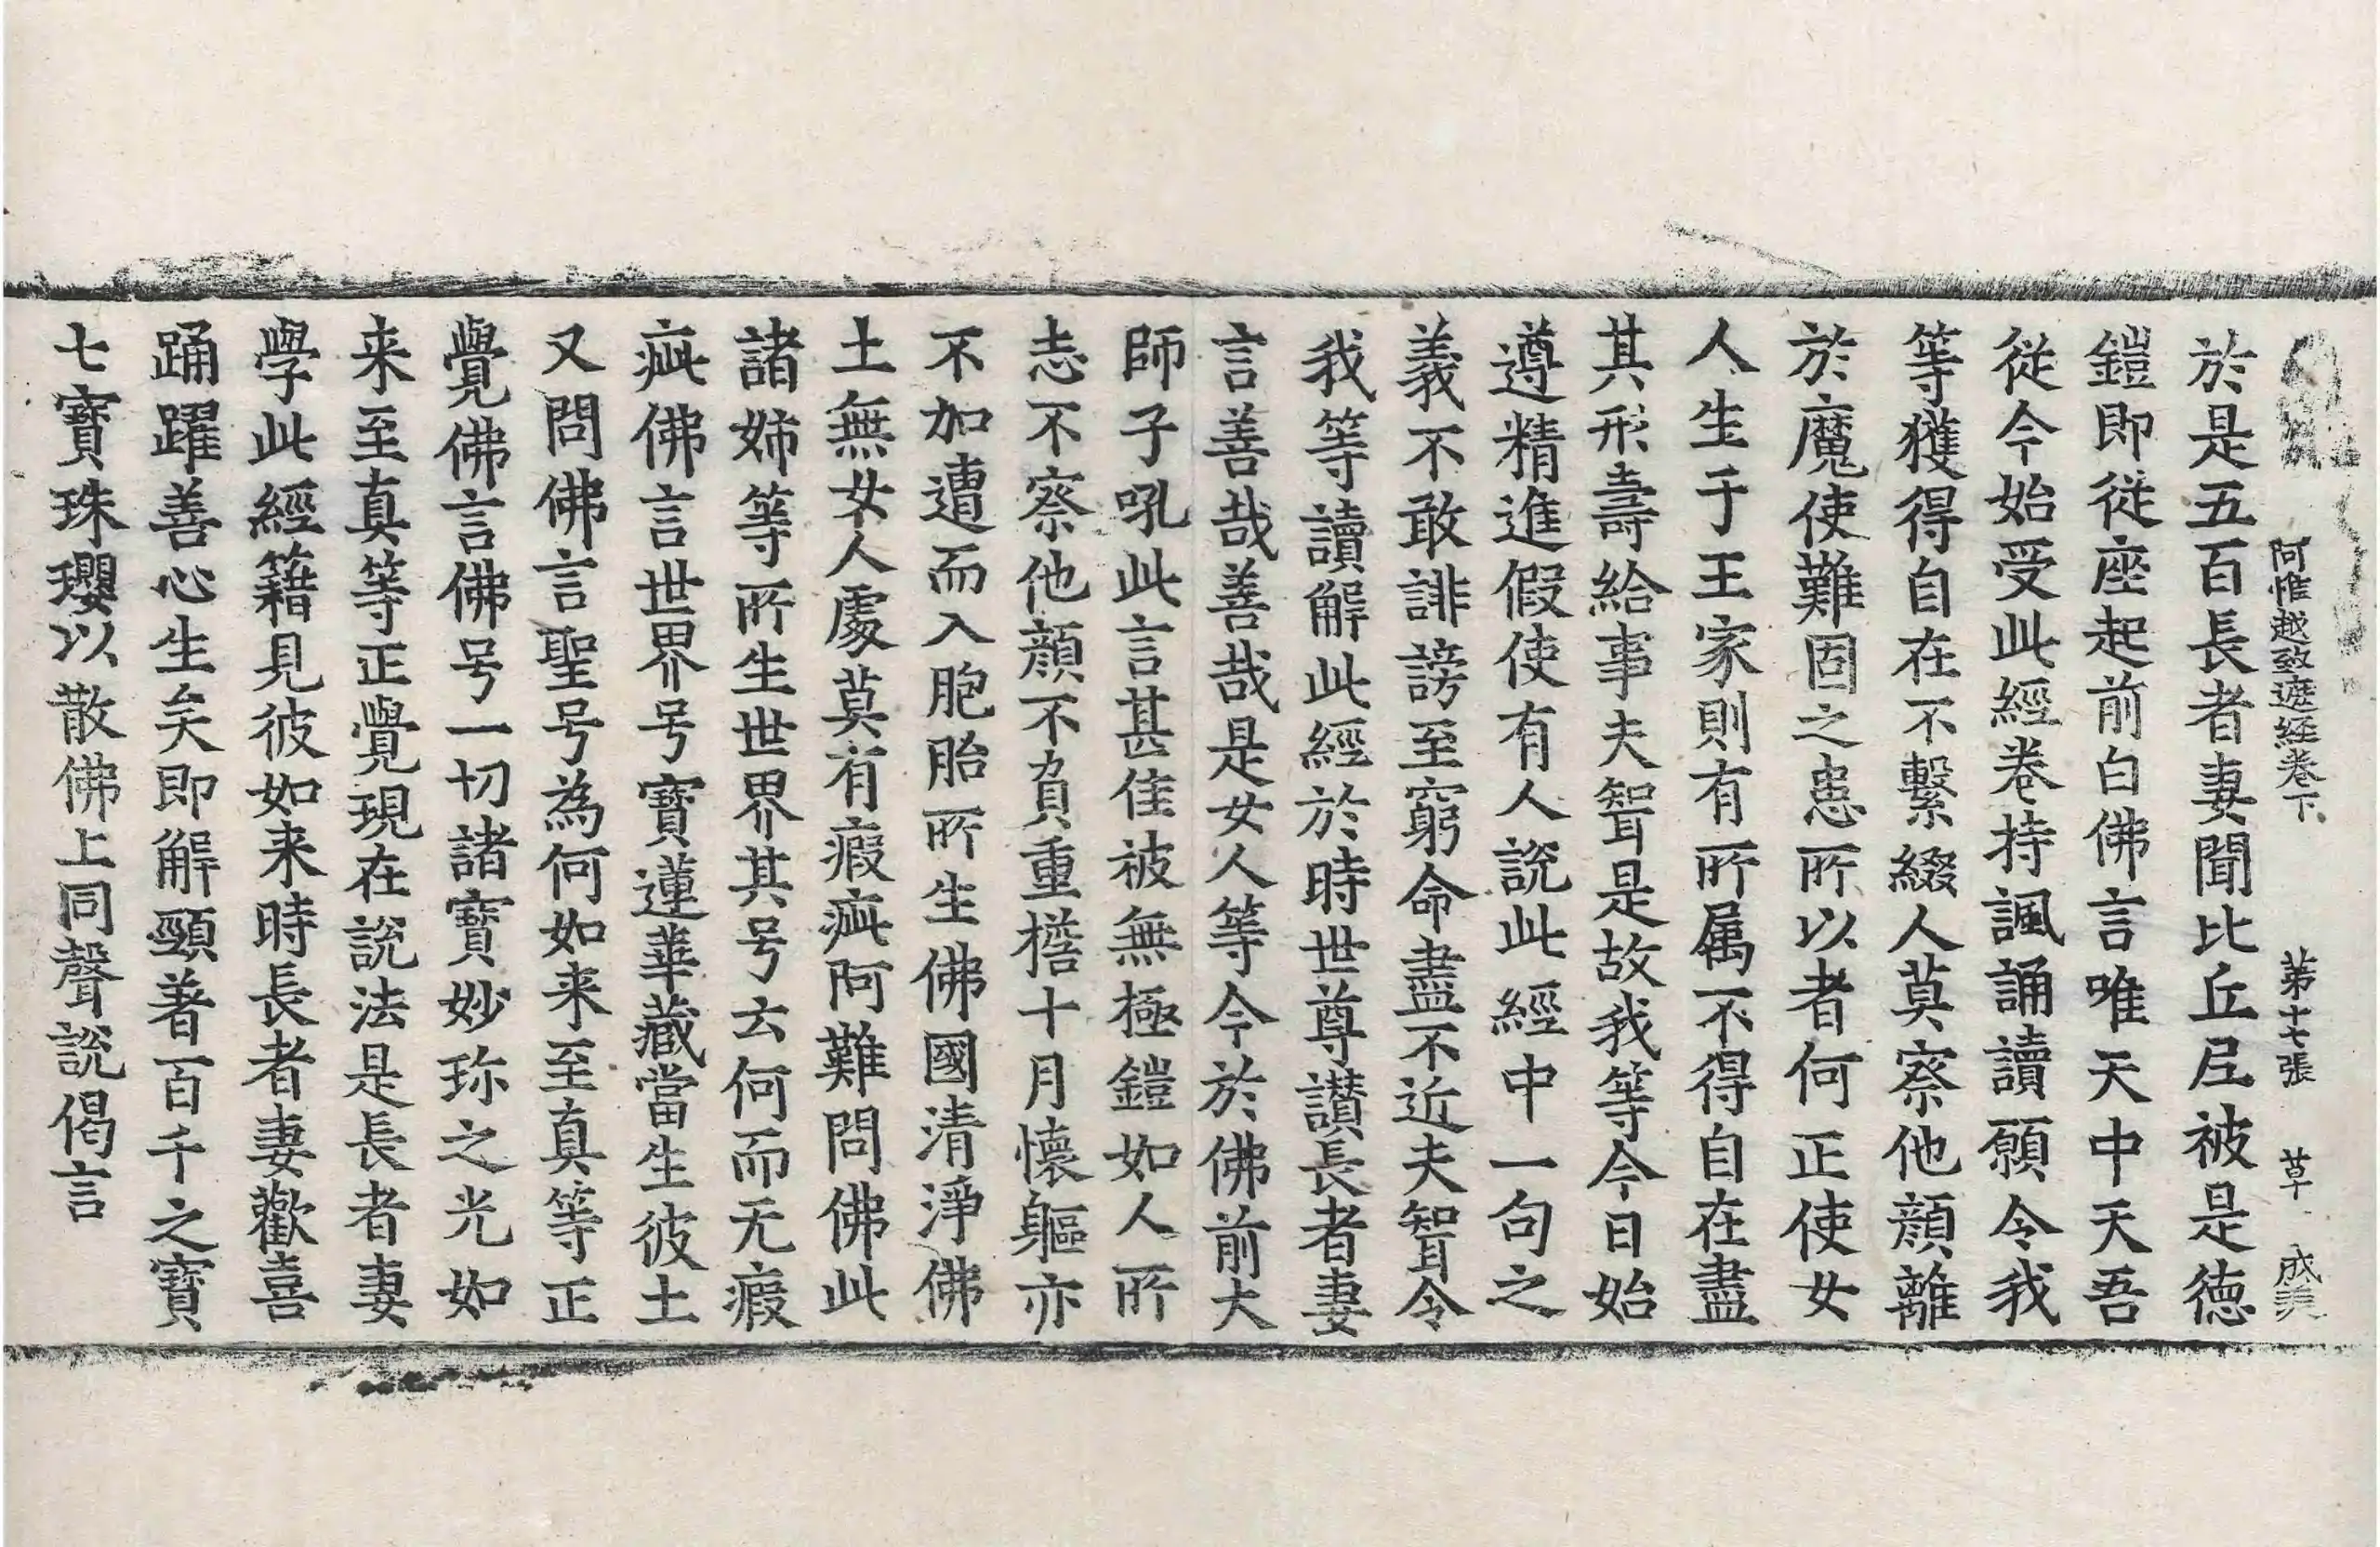 阿惟越致遮経卷下 第十七張 草 成美
於是五百長者妻聞比丘𡰱被是德
鎧即從座起前白佛言唯天中天吾
從今始受此經卷持諷誦讀願令我
等獲得自在不繫綴人莫察他顔離
於魔使難固之患所以者何正使女
人生于王家則有所属不得自在盡
其形壽給事夫聟是故我等今日始
遵精進假使有人說此經中一句之
義不敢誹謗至窮命盡不近夫聟令
我等讀解此經於時世尊讃長者妻
言善哉善哉是女人等今於佛前大
師子吼此言甚佳被無極鎧如人所
志不察他顔不負重擔十月懷軀亦
不加遭而入胞胎所生佛國清淨佛
土無女人處莫有瘕疵阿難問佛此
諸姉等所生世界其号云何而无瘕
疵佛言世界号寶蓮華藏當生彼土
又問佛言聖号為何如来至真等正
覺佛言佛号一切諸寶妙珎之光如
来至真等正覺現在說法是長者妻
學此經籍見彼如来時長者妻歡喜
踊躍善心生矣即解頸著百千之寶
七寶珠瓔以散佛上同聲說偈言